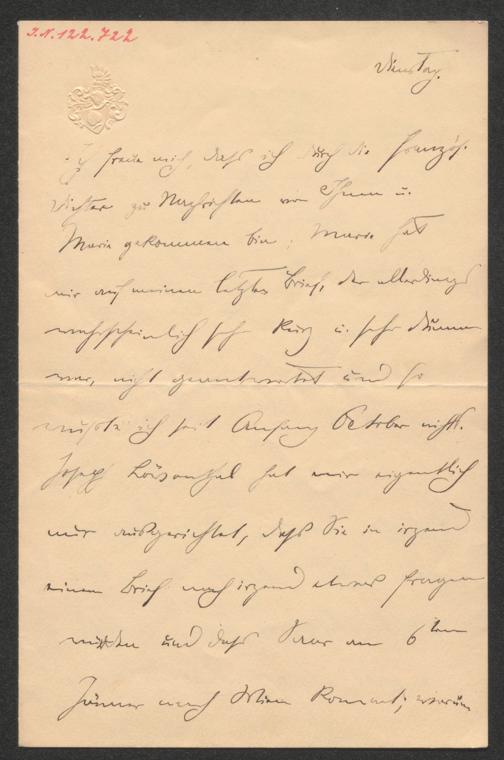 I.N. 122.722
Dienstag.
Ich freue mich, dass ich durch die französ.
Dichter zu Nachrichten von Ihnen u.
Marie gekommen bin; Marie hat
mir auf meinen letzten Brief, der allerdings
wahrscheinlich sehr kurz u. sehr dumm
war, nicht geantwortet und so
wußte ich seit Anfang October nichts.
Joseph hat mir eigentlich
nur ausgerichtet, dass Sie in irgend
einem Brief nach irgend etwas fragen
und dass am 6ten
Jänner nach Wien kommt; warum